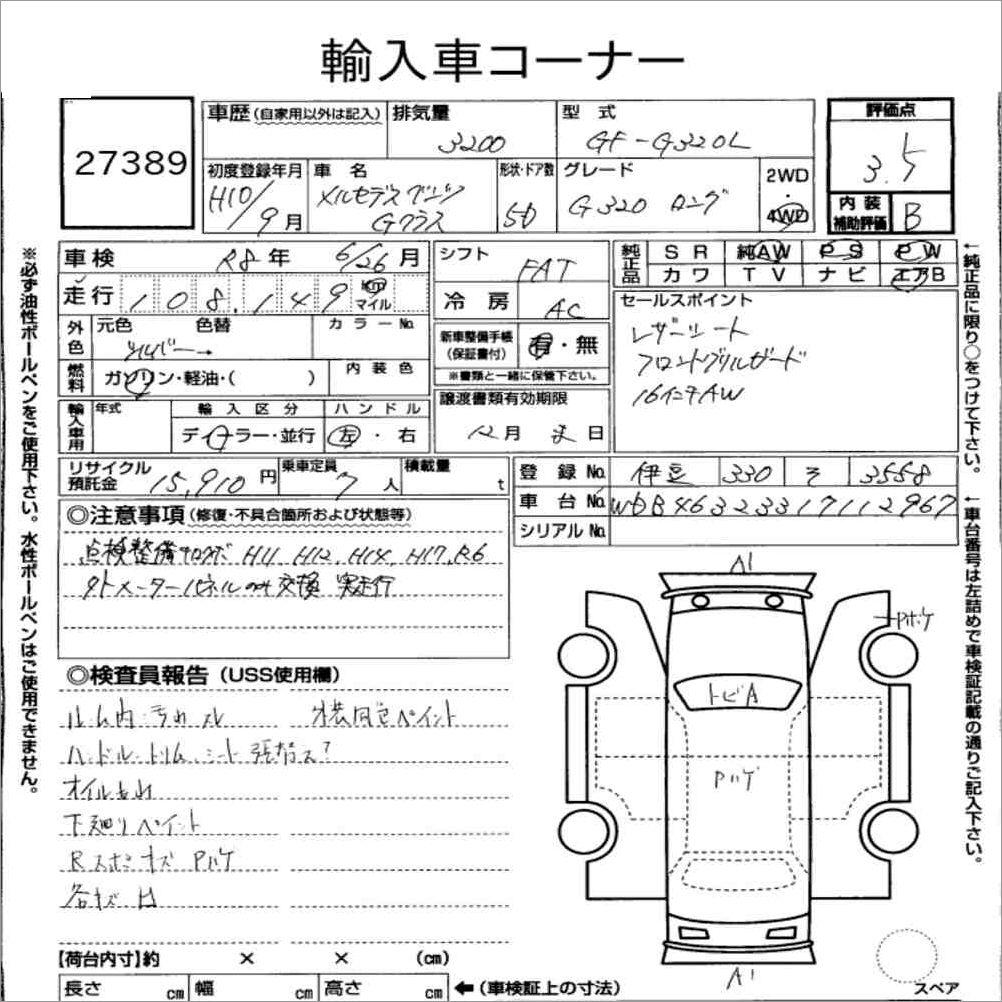 輸入車コーナー
27389
車歴(自家用以外は記入)
排気量
3200
型式
GF-G320L
評価点
3.5
初度登録年月
H10/9月
車名
メルセデスベンツ
Gクラス
形状・ドア数
5D
グレード
G320 ロング
2WD
・
4WD
内装
補助評価
B
車検
R8年 6/26月
シフト
FAT
純正品
SR 純AW PS PW
カワ TV ナビ エアB
走行
108,149
km
マイル
冷房
AC
セールスポイント
レザーシート
フロントグリルガード
16インチAW
外色
元色 色替
シルバー→
カラーNo.
新車整備手帳
(保証書付)
有・無
※書類と一緒に保管下さい。
燃料
ガソリン・軽油・( )
内装色
輸入車用
年式
輸入区分
ディーラー・並行
ハンドル
左・右
譲渡書類有効期限
12月 末日
リサイクル
預託金
15,910円
乗車定員
7人
積載量
t
登録No.
伊豆 330 そ 3558
車台No.
WDB46323317112967
シリアルNo.
◎注意事項(修復・不具合箇所および状態等)
点検整備 H11、H12、H14、H17、R6
タコメーターパネルのみ交換 実走行
◎検査員報告(USS使用欄)
ルーム内ヨゴレスレ 外装同色ペイント
ハンドル・トリム、シート張替ス?
オイルもれ
下廻りペイント
Rスポキズ Pハゲ
各キズ凹
A1
Pボケ
トビA
Pハゲ
A1
スペア
【荷台内寸】約 × × (cm)
長さ cm 幅 cm 高さ cm ←(車検証上の寸法)
※必ず油性ボールペンをご使用下さい。水性ボールペンはご使用できません。
←純正品に限り○をつけて下さい。
←車台番号は左詰めで車検証記載の通りご記入下さい。